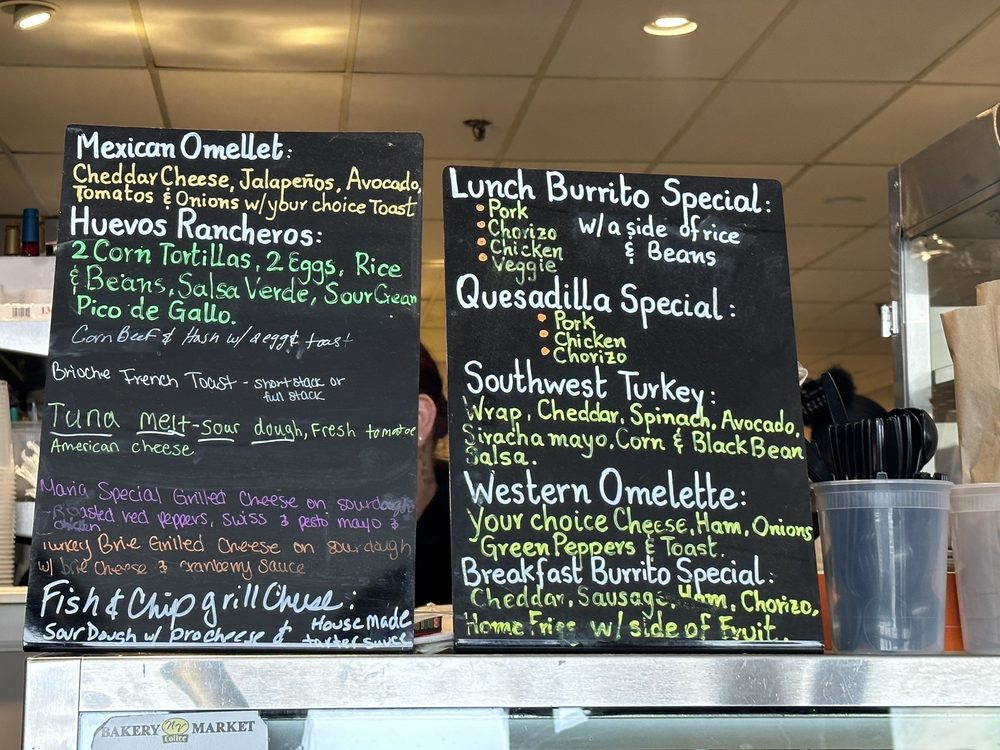 Mexican Omellet:
Cheddar Cheese, Jalapeños, Avocado,
Tomatos & Onions w/your choice Toast
Huevos Rancheros:
2 Corn Tortillas, 2 Eggs, Rice
& Beans, Salsa Verde, Sour Cream
Pico de Gallo.
Corn Beef & Hash w/ 2 egg & toast
Brioche French Toast - short stack or
full stack
Tuna melt - sour dough, Fresh tomatoe
American cheese
Maria Special Grilled Cheese on sourdough
- Roasted red peppers, swiss & pesto mayo &
chicken
Turkey Brie Grilled Cheese on sourdough
w/ brie cheese & cranberry sauce
Fish & Chip grill Cheese:
Sour Dough w/ pro cheese & House made
tarter sauce
Lunch Burrito Special:
Pork
Chorizo
Chicken
Veggie
w/a side of rice
& Beans
Quesadilla Special:
Pork
Chicken
Chorizo
Southwest Turkey:
Wrap, Cheddar, Spinach, Avocado,
Siracha mayo, Corn & Black Bean
Salsa.
Western Omelette:
Your choice Cheese, Ham, Onions
Green Peppers & Toast.
Breakfast Burrito Special:
Cheddar, Sausage, Ham, Chorizo,
Home Fries w/ side of Fruit.
BAKERY NY Coffee MARKET